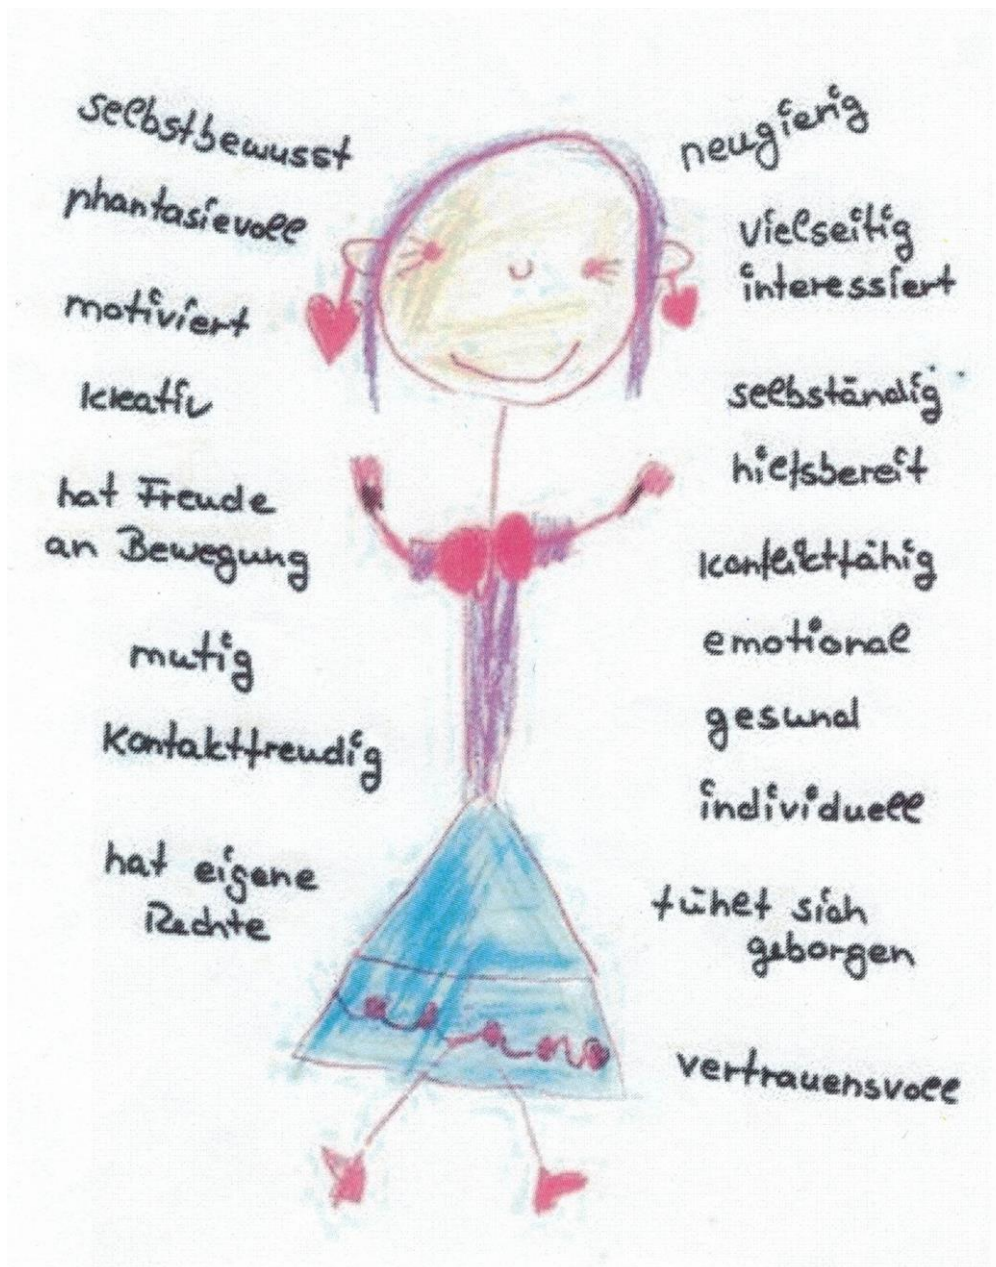 selbstbewusst
phantasievoll
motiviert
kreativ
hat Freude
an Bewegung
mutig
Kontaktfreudig
hat eigene
Rechte
neugierig
vielseitig
interessiert
selbständig
hilfsbereit
konfliktfähig
emotional
gesund
individuell
fühlt sich
geborgen
vertrauensvoll